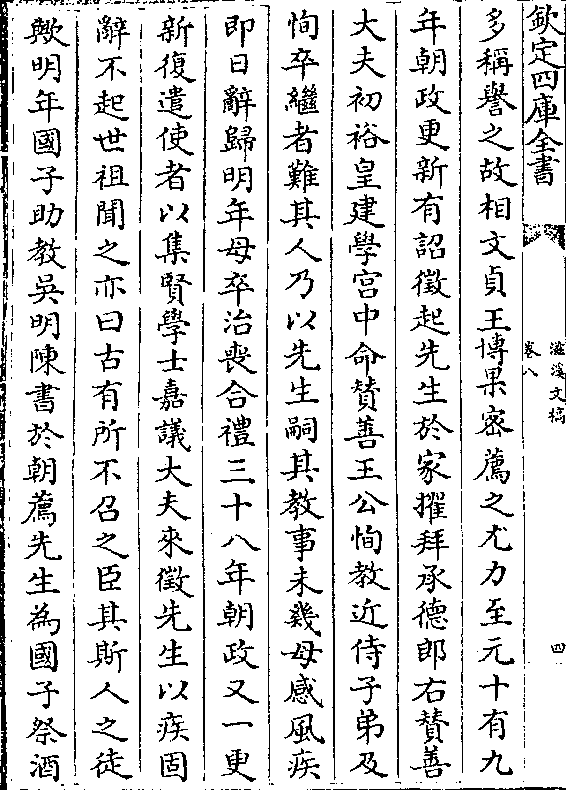 欽定四庫全書
滋溪文稿
卷八
四
多稱譽之故相文貞王博果密薦之尤力至元十有九
年朝政更新有詔徵起先生於家擢拜承德郎右贊善
大夫初裕皇建學宫中命贊善王公恂教近侍子弟及
恂卒繼者難其人乃以先生嗣其教事未幾母感風疾
即日辭歸明年母卒治喪合禮三十八年朝政又一更
新復遣使者以集賢學士嘉議大夫來徵先生以疾固
辭不起世祖聞之亦曰古有所不召之臣其斯人之徒
歟明年國子助教吳明陳書於朝薦先生為國子祭酒